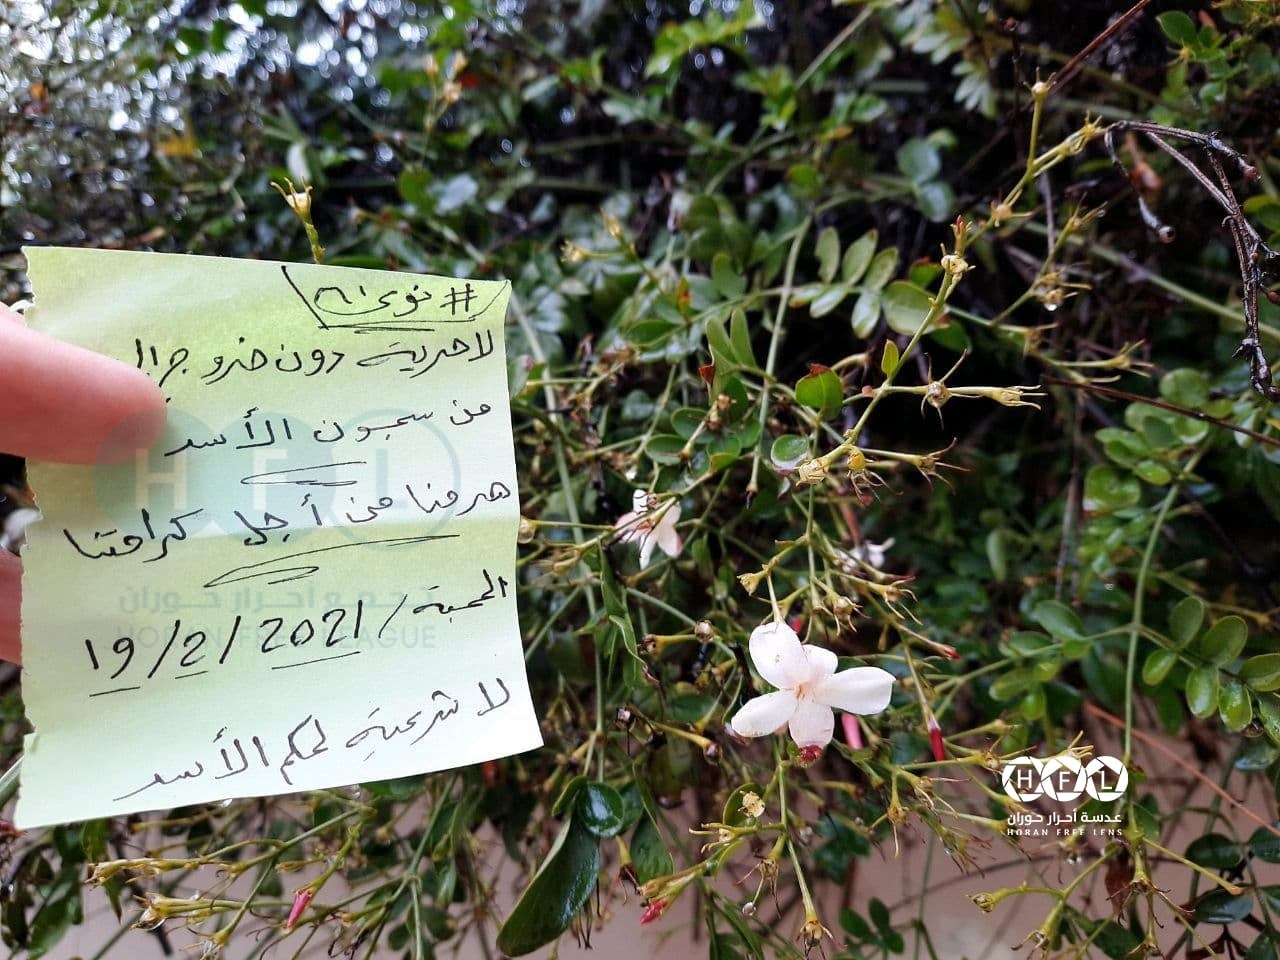 # نوى ٩١
لا حرية دون خروج الـ
من سجون الأسد
خرجنا من أجل كرامتنا
19/2/2021 / المحجة
لا شرعية لحكم الأسد
تجمع أحرار حوران
HORAN FREE LEAGUE
HFL
HFL
عدسة أحرار حوران
HORAN FREE LENS